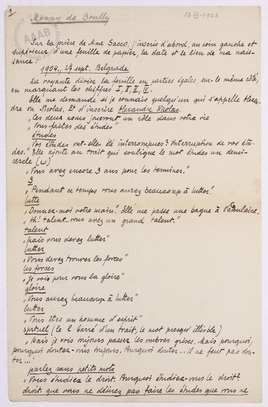 Monny de Boully
Sur la prière de Mme Sacco, j'inscris d'abord, au coin gauche et
supérieur d'une feuille de papier, la date et le lieu de ma nais-
sance:
1904, 27 sept. Belgrade
La voyante divise la feuille en parties égales, sur le même côté,
en marquant les chiffres I, II, III, IV.
Elle me demande si je connais quelqu'un qui s'appelle Alexan-
dre ou Nicolas. Et d'inscrire Alexandre Nicolas.
„Les deux vous joueront un rôle dans votre vie
„Vous faites des études"
études
„Vos études ont-elles été interrompues? Interruption de vos étu-
des." Elle ajoute au trait qui souligne le mot études un demi-
cercle (∪)
„Vous avez encore 3 ans pour les terminer."
3
„Pendant ce temps vous aurez beaucoup à lutter!
lutte
„Donnez-moi votre main". Elle me passe une bague à l'annulaire.
„Ah! talent, vous avez un grand talent."
talent
„Mais vous devez lutter"
lutter
„Vous devez trouver les forces"
les forces
„Je vois pour vous la gloire"
gloire
„Vous aurez beaucoup à lutter"
lutter
„Vous êtes un homme d'esprit"
spirtuel (le l barré d'un trait, le mot presque illisible)
„Mais je vois toujours passer les ombres grises. Mais pourquoi,
pourquoi doutez-vous toujours. Pourquoi douter... il ne faut pas dou-
ter..."
parler sans petits mots
„Vous étudiez le droit. Pourquoi étudiez-vous le droit?
droit que vous ne désirez pas faire les études que vous ne